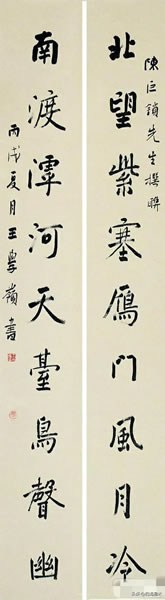 陳巨鎖先生撰聯
北望紫塞鴈門風月冷
南渡潭河天臺鳥聲幽
丙戌夏月王學嶺書